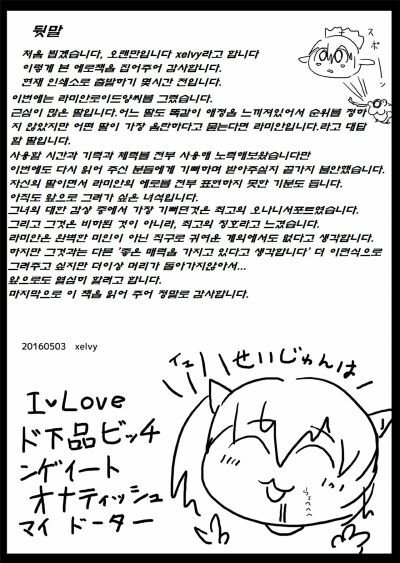 뒷말
처음 뵙겠습니다, 오랜만입니다 xelvy라고 합니다
이렇게 본 에로책을 집어주어 감사합니다.
현재 인쇄소로 출발하기 몇시간 전입니다.
이번에는 라미안로이드양씨를 그렸습니다.
근심이 많은 딸입니다.어느 딸도 똑같이 애정을 느끼져있어서 순위를 정하
지 않았지만 어떤 딸이 가장 음란하다고 묻는다면 라미안입니다.라고 대답
할 딸입니다.
사용할 시간과 기력과 체력를 전부 사용해 노력해보았습니다만
이번에도 다시 읽어 주신 분들에게 기뻐하며 받아주실지 끝가지 불안했습니다.
자신의 딸이면서 라미안의 에로를 전부 표현하지 못한 기분도 듭니다.
아직도 앞으로 그려가 싶은 녀석입니다.
그녀의 대한 감상 중에서 가장 기뻐던것은 최고의 오나니서포트였습니다.
그리고 그것은 비하된 것이 아니라, 최고의 칭호라고 느꼈습니다.
라미안은 완벽한 미인이 아닌 직구로 귀여운 계의에서도 없다고 생각합니다.
하지만 그것과는 다른 '좋은 매력을 가지고 있다고 생각합니다' 더 이런식으로
그려주고 싶지만 더이상 머리가 돌아가지않아서...
앞으로도 열심히 할려고 합니다.
마지막으로 이 책을 읽어 주어 정말로 감사합니다.
20160503 xelvy
スポーン
せいじゅんは
I♥Love
ド下品ビッチ
ンゲイート
オナティッシュ
マイ ドーター